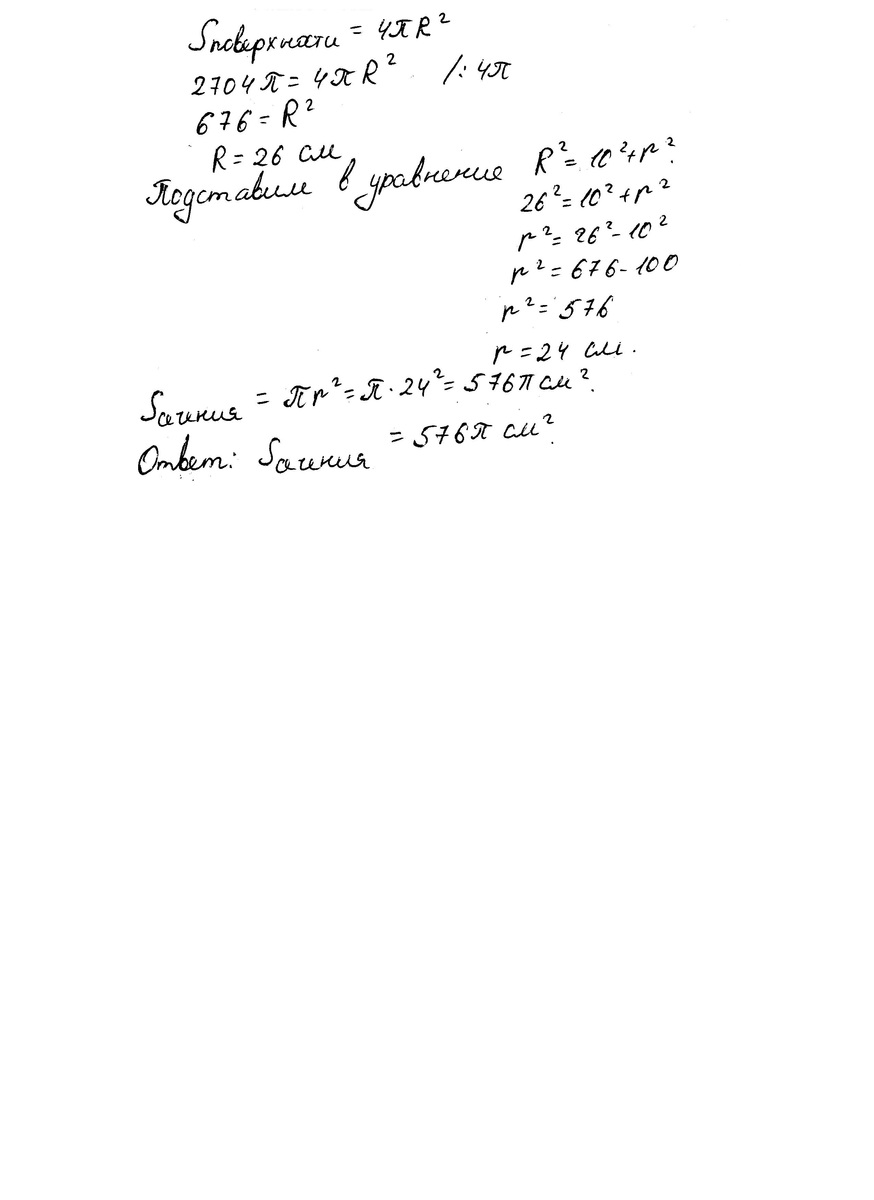 Sповерхности = 4πR²
2704π = 4πR² /: 4π
676 = R²
R = 26 см
Подставим в уравнение R² = 10² + r².
26² = 10² + r²
r² = 26² - 10²
r² = 676 - 100
r² = 576
r = 24 см.
Sсечения = πr² = π · 24² = 576π см².
Ответ: Sсечения = 576π см².